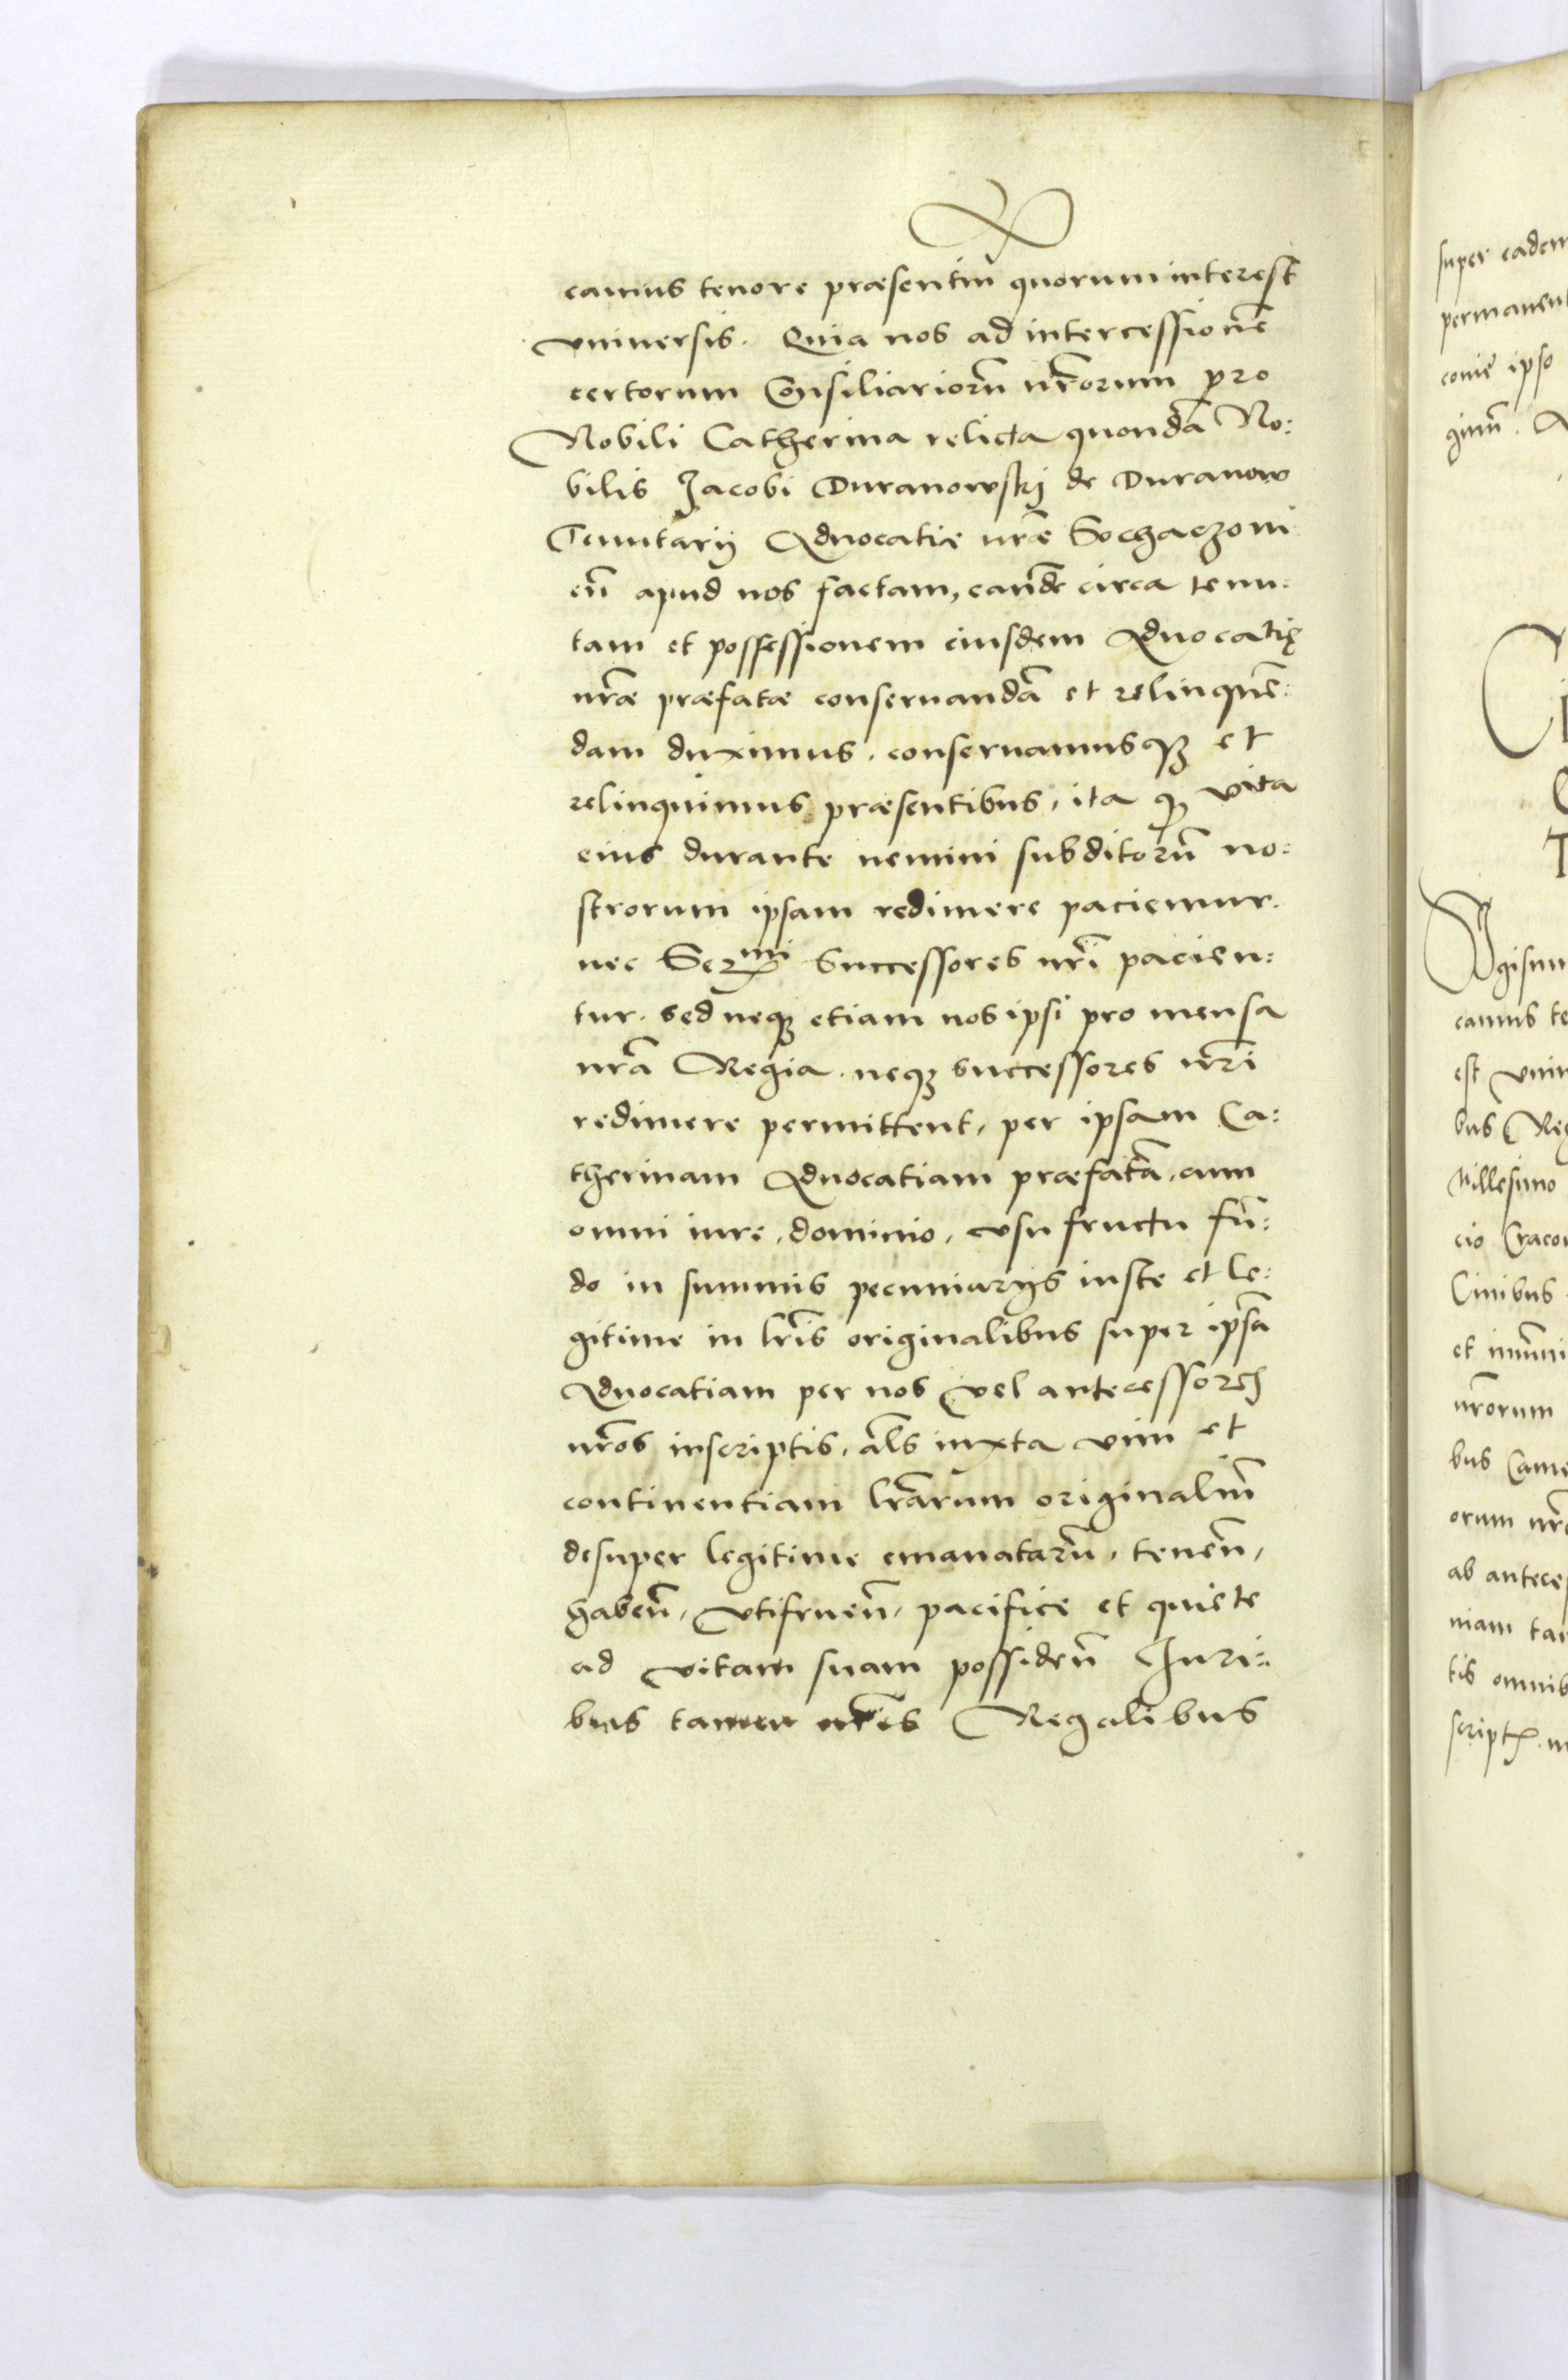 camus tenore præsentiū quorum interest
vniuersis. Quia nos ad intercessionē
certorum Consiliariorū nr̄orum pro
Nobili Catherina relicta quondā No:
bilis Jacobi Duranowskÿ de Duranow
Tenutarÿ Aduocatiæ nr̄æ Sochaczoui
eñ apud nos factam, eandē circa tenu:
tam et possessionem eiusdem Aduocatię
nr̄æ præfatæ conseruandā et relinquē:
dam duximus. conseruamusq̧ et
relinquimus præsentibus, ita q̧ vita
eius durante nemini subditorū no:
strorum ipsam redimere paciemur.
nec Ser^mi Successores nr̄i pacien:
tur. sed neq̧ etiam nos ipsi pro mensa
nr̄a Regia. neq̧ successores nr̄i
redimere permittent, per ipsam Ca:
therinam Aduocatiam præfatā, cum
omni iure, dominio, vsufructu fū:
do in summis pecuniarÿs iuste et le:
gitime in lr̄is originalibus super ipsā
Aduocatiam per nos vel antecessores
nr̄os inscriptis, al̄s iuxta vim et
continentiam lr̄arum originaliū
desuper legitime emanatarū, teneñ,
habeñ, vtifrueñ, pacifice et quiete
ad vitam suam possideñ Juri:
bus tamen nr̄is Regalibus
super eadem
permanen
conie ipso
ginū.
gismu
camus te
est vni
bus Reg
Millesimo
cio Craco
Ciuibus
et
nr̄orum
bus Came
orum nr̄o
ab antece
niam ta
tis omnib
script